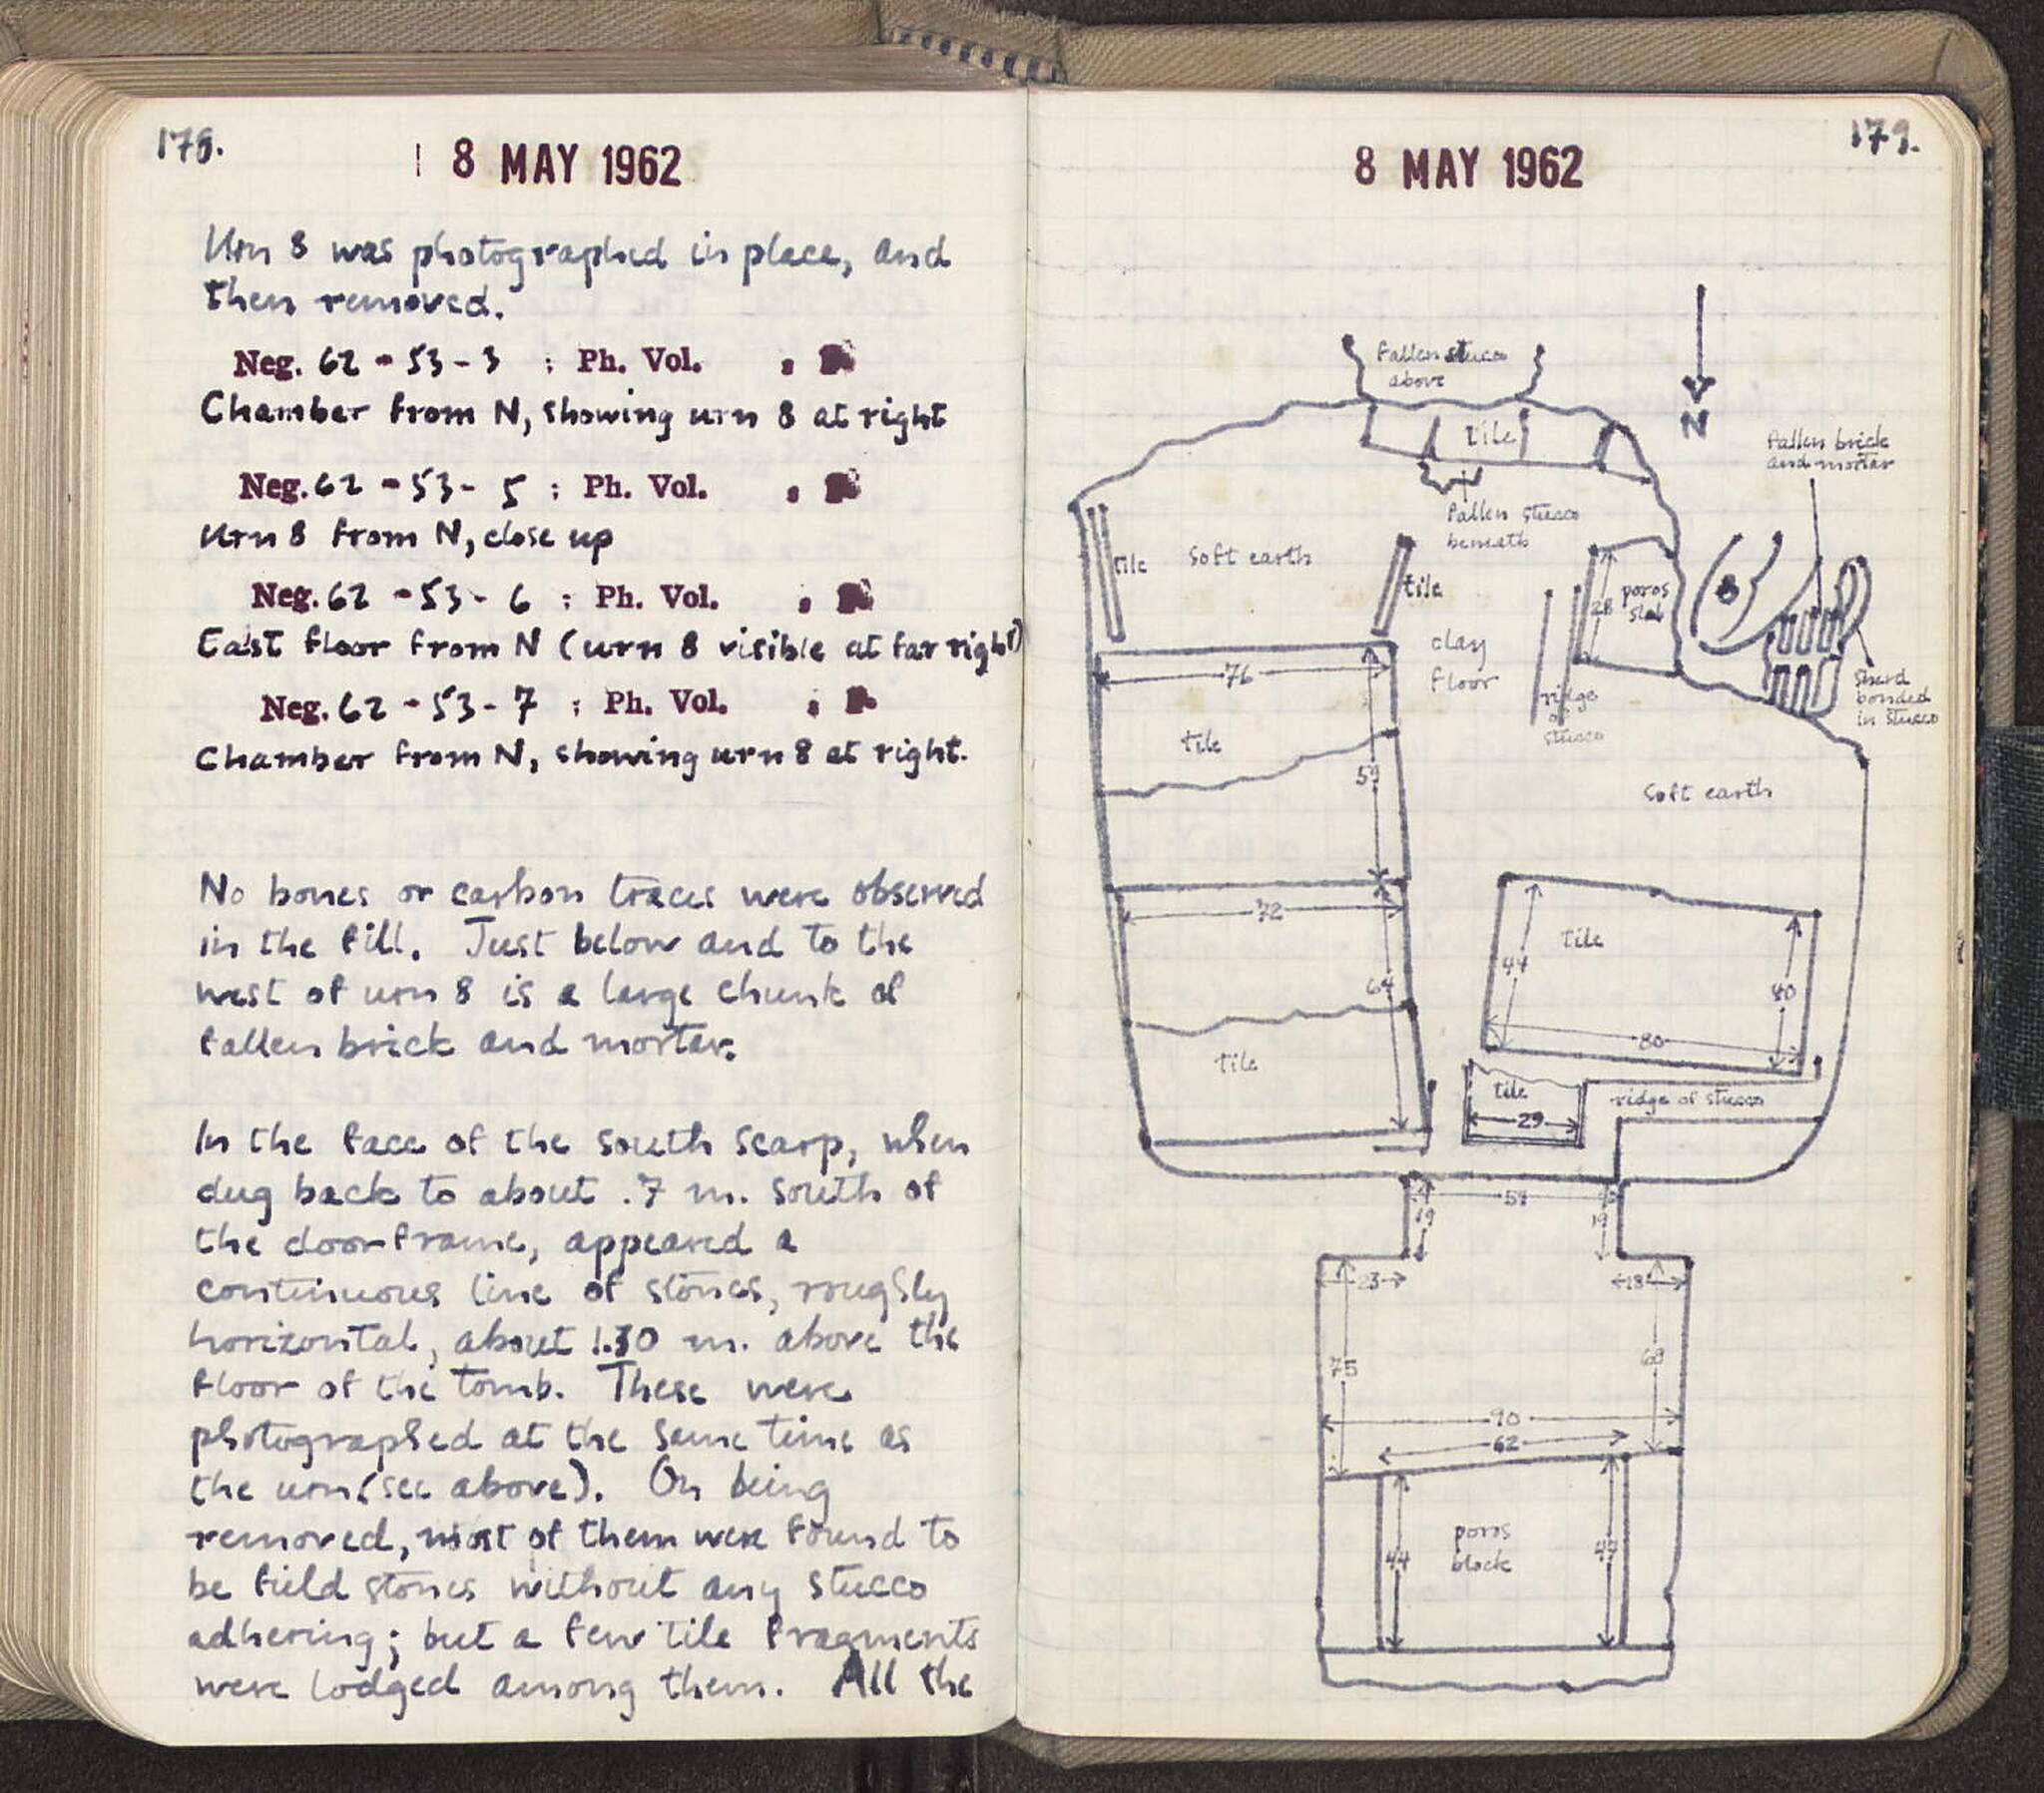 178.
8 MAY 1962
Urn 8 was photographed in place, and
then removed.
Neg. 62 - 53 - 3 ; Ph. Vol.
Chamber from N, showing urn 8 at right
Neg. 62 - 53 - 5 ; Ph. Vol.
Urn 8 from N, close up
Neg. 62 - 53 - 6 ; Ph. Vol.
East floor from N (urn 8 visible at far right)
Neg. 62 - 53 - 7 ; Ph. Vol.
Chamber from N, showing urn 8 at right.
No bones or carbon traces were observed
in the fill. Just below and to the
west of urn 8 is a large chunk of
fallen brick and mortar.
In the face of the south scarp, when
dug back to about .7 m. south of
the doorframe, appeared a
continuous line of stones, roughly
horizontal, about 1.30 m. above the
floor of the tomb. These were
photographed at the same time as
the urn (see above). On being
removed, most of them were found to
be field stones without any stucco
adhering; but a few tile fragments
were lodged among them. All the
179.
8 MAY 1962
N
fallen stucco
above
tile
fallen brick
and mortar
fallen stucco
beneath
tile
soft earth
tile
28
poros
slab
8
clay
floor
ridge
of
stucco
shard
bonded
in stucco
76
tile
soft earth
72
tile
44
40
64
80
tile
tile
29
ridge of stucco
19
19
23
18
75
68
90
62
poros
block
44
44